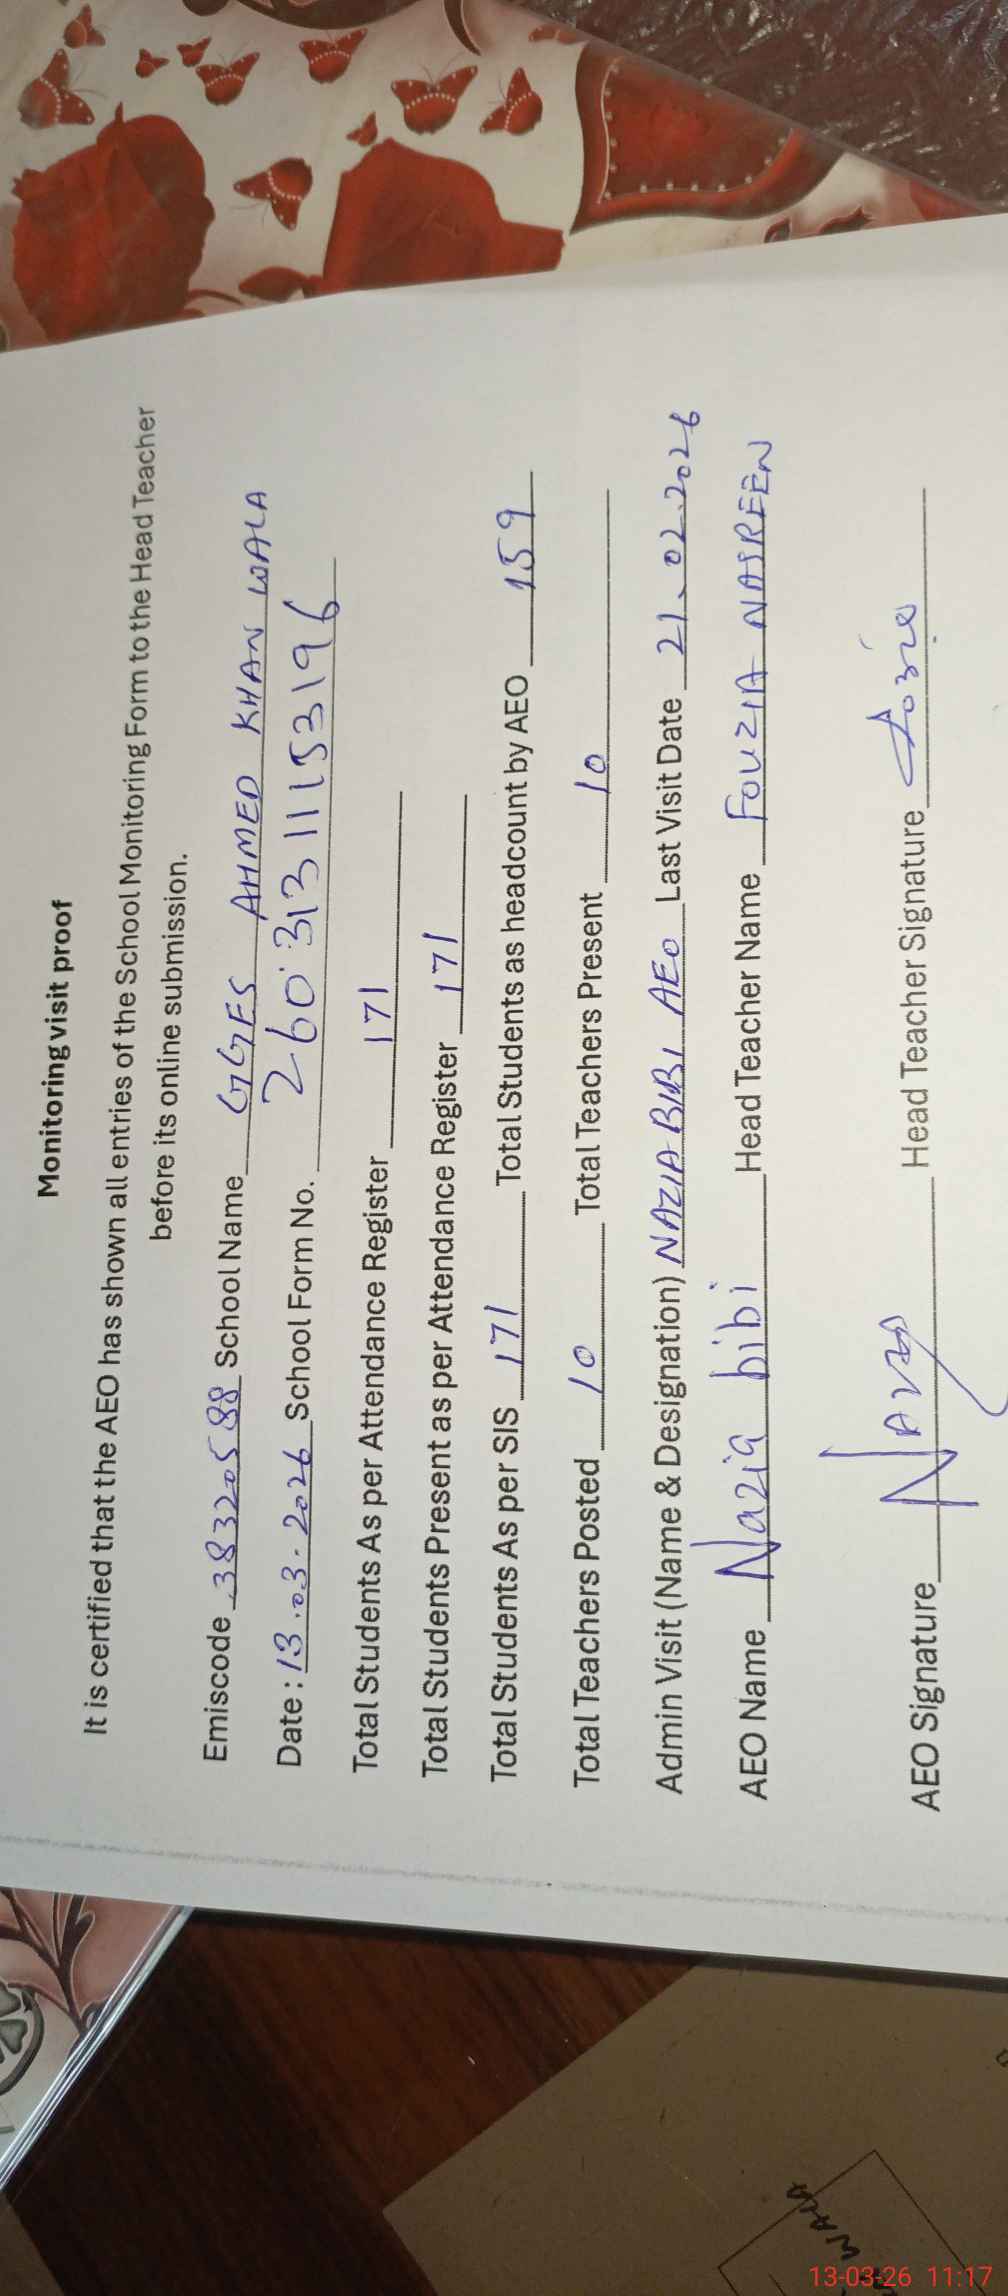 Monitoring visit proof
It is certified that the AEO has shown all entries of the School Monitoring Form to the Head Teacher
before its online submission.
Emiscode 38320588 School Name GGES AHMED KHAN WALA
Date: 13.03.2026 School Form No. 260313111153196
Total Students As per Attendance Register 171
Total Students Present as per Attendance Register 171
Total Students As per SIS 171 Total Students as headcount by AEO 159
Total Teachers Posted 10 Total Teachers Present 10
Admin Visit (Name & Designation) NAZIA BIBI AEO Last Visit Date 21.02.2026
AEO Name Nazia bibi Head Teacher Name FOUZIA NASREEN
AEO Signature Head Teacher Signature
WALA
13-03-26 11:17